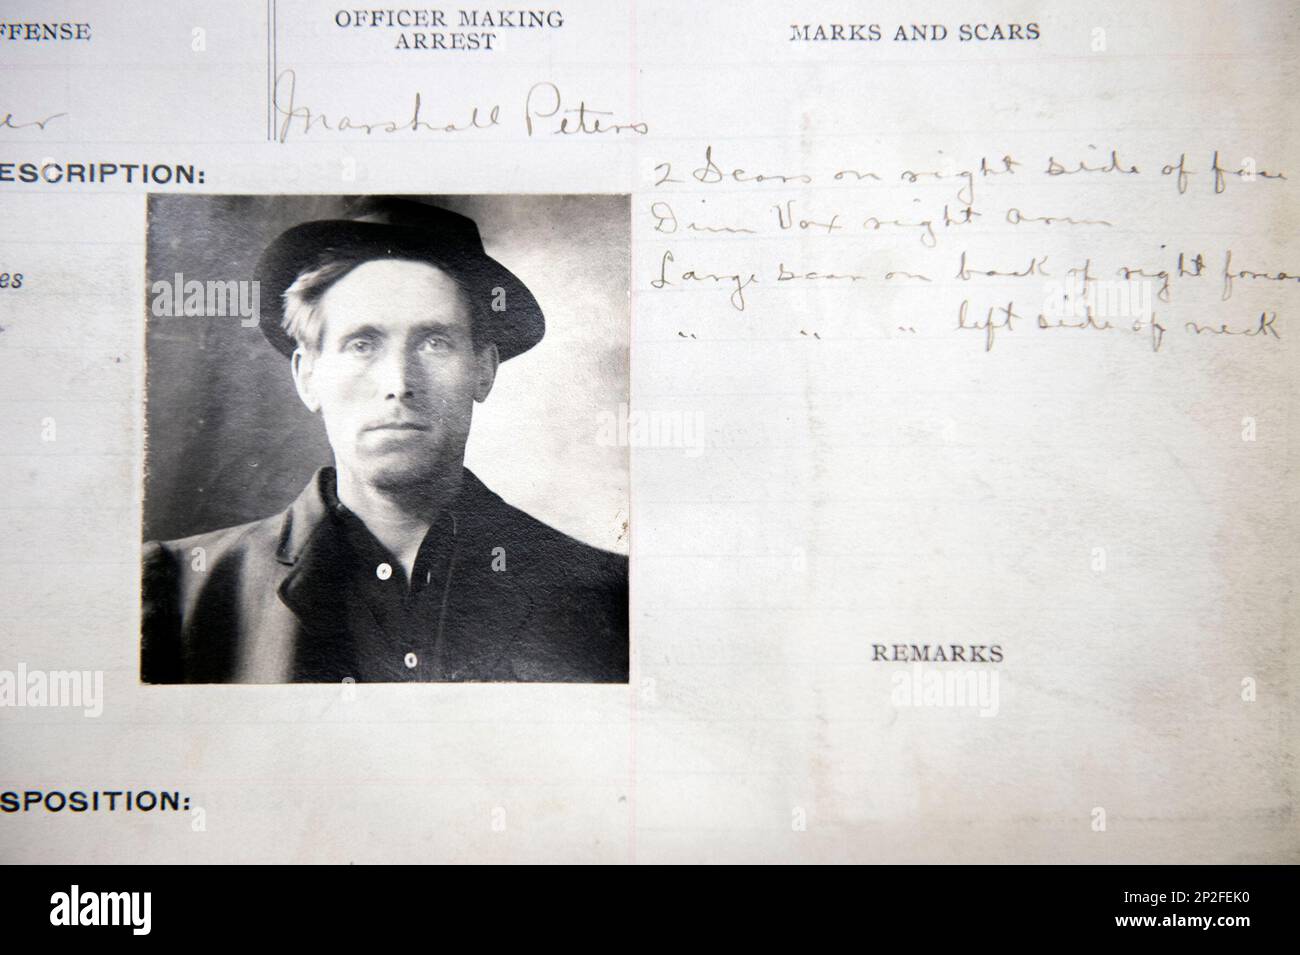 FFENSE
OFFICER MAKING
ARREST
MARKS AND SCARS
er
Marshall Peters
ESCRIPTION:
2 Scars on right side of face
Dim Vox right arm
es
Large scar on back of right forear
" " " left side of neck
REMARKS
SPOSITION:
alamy
alamy
alamy
alamy
Image ID: 2P2FEK0
www.alamy.com